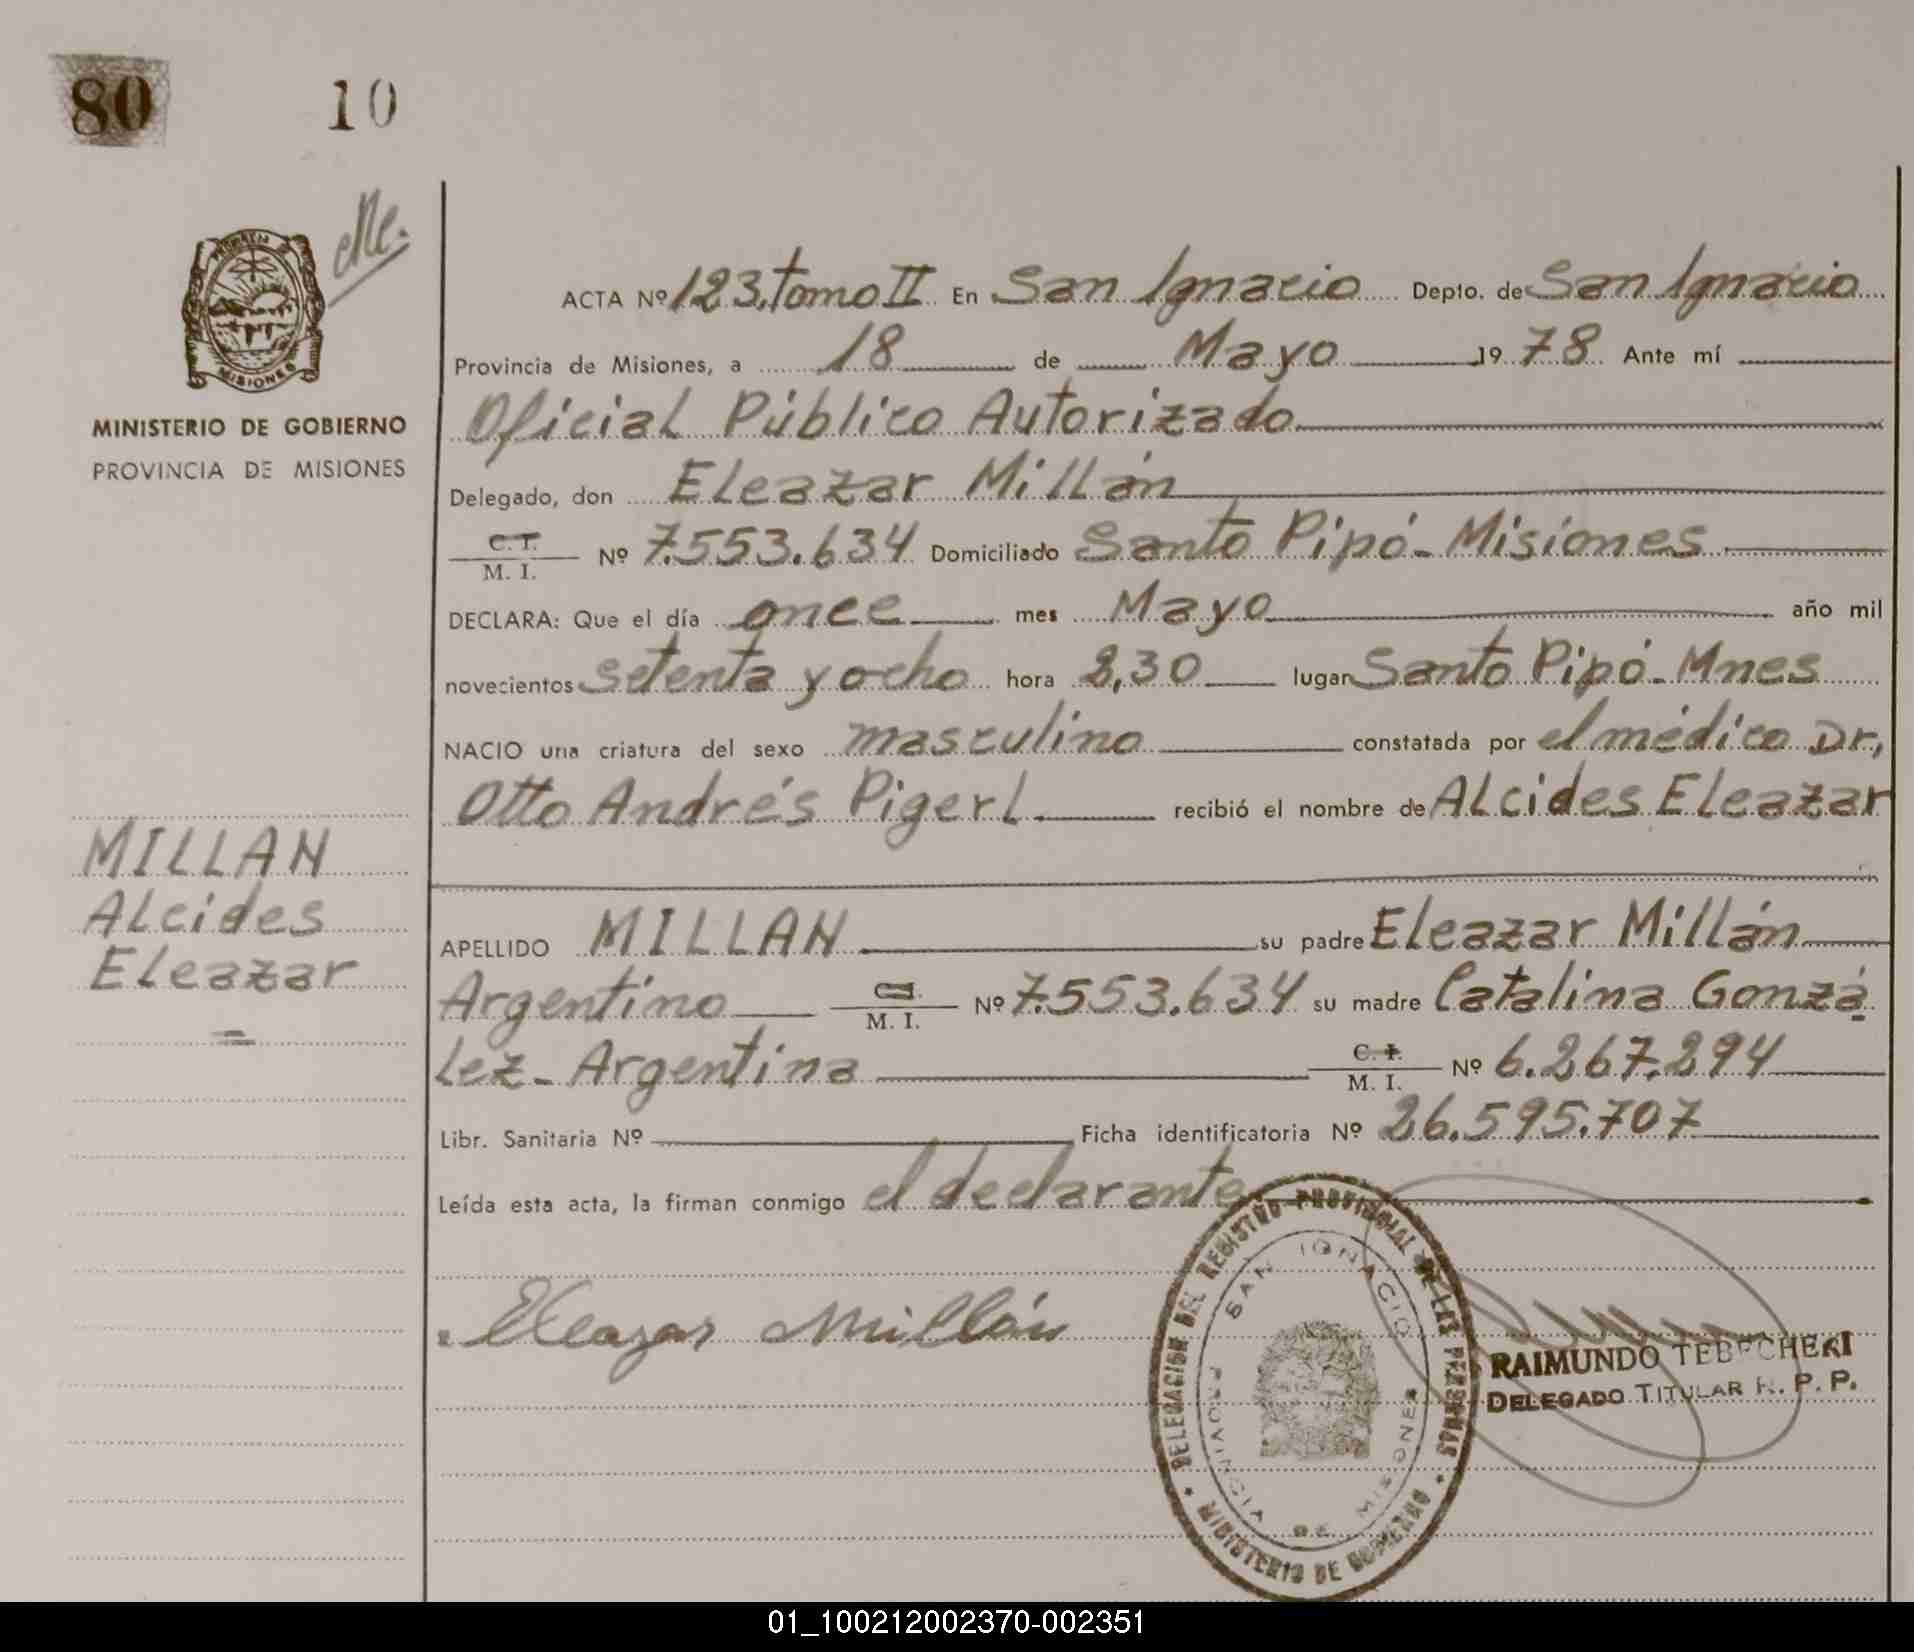 80 10
PROVINCIA DE
MISIONES
MINISTERIO DE GOBIERNO
PROVINCIA DE MISIONES
MILLAN
Alcides
Eleazar
=
ACTA Nº 123.tomo II En San Ignacio Depto. de San Ignacio
Provincia de Misiones, a 18 de Mayo 19 78 Ante mí
Oficial Público Autorizado
Delegado, don Eleazar Millán
C. I.
M. I. Nº 7.553.634 Domiciliado Santo Pipó - Misiones
DECLARA: Que el día once mes Mayo año mil
novecientos setenta y ocho hora 2,30 lugar Santo Pipó - Mnes
NACIO una criatura del sexo masculino constatada por el médico Dr,
Otto Andrés Pigerl recibió el nombre de Alcides Eleazar
APELLIDO MILLAN su padre Eleazar Millán
Argentino C. I.
M. I. Nº 7.553.634 su madre Catalina Gonzá
lez - Argentina C. I.
M. I. Nº 6.267.294
Libr. Sanitaria Nº Ficha identificatoria Nº 26.595.707
Leída esta acta, la firman conmigo el declarante
Eleazar Millán
DELEGACION DEL REGISTRO PROVINCIAL DE LAS PERSONAS
MINISTERIO DE GOBIERNO
SAN IGNACIO
PROVINCIA DE MISIONES
RAIMUNDO TEBECHERI
DELEGADO TITULAR R. P. P.
01_100212002370-002351